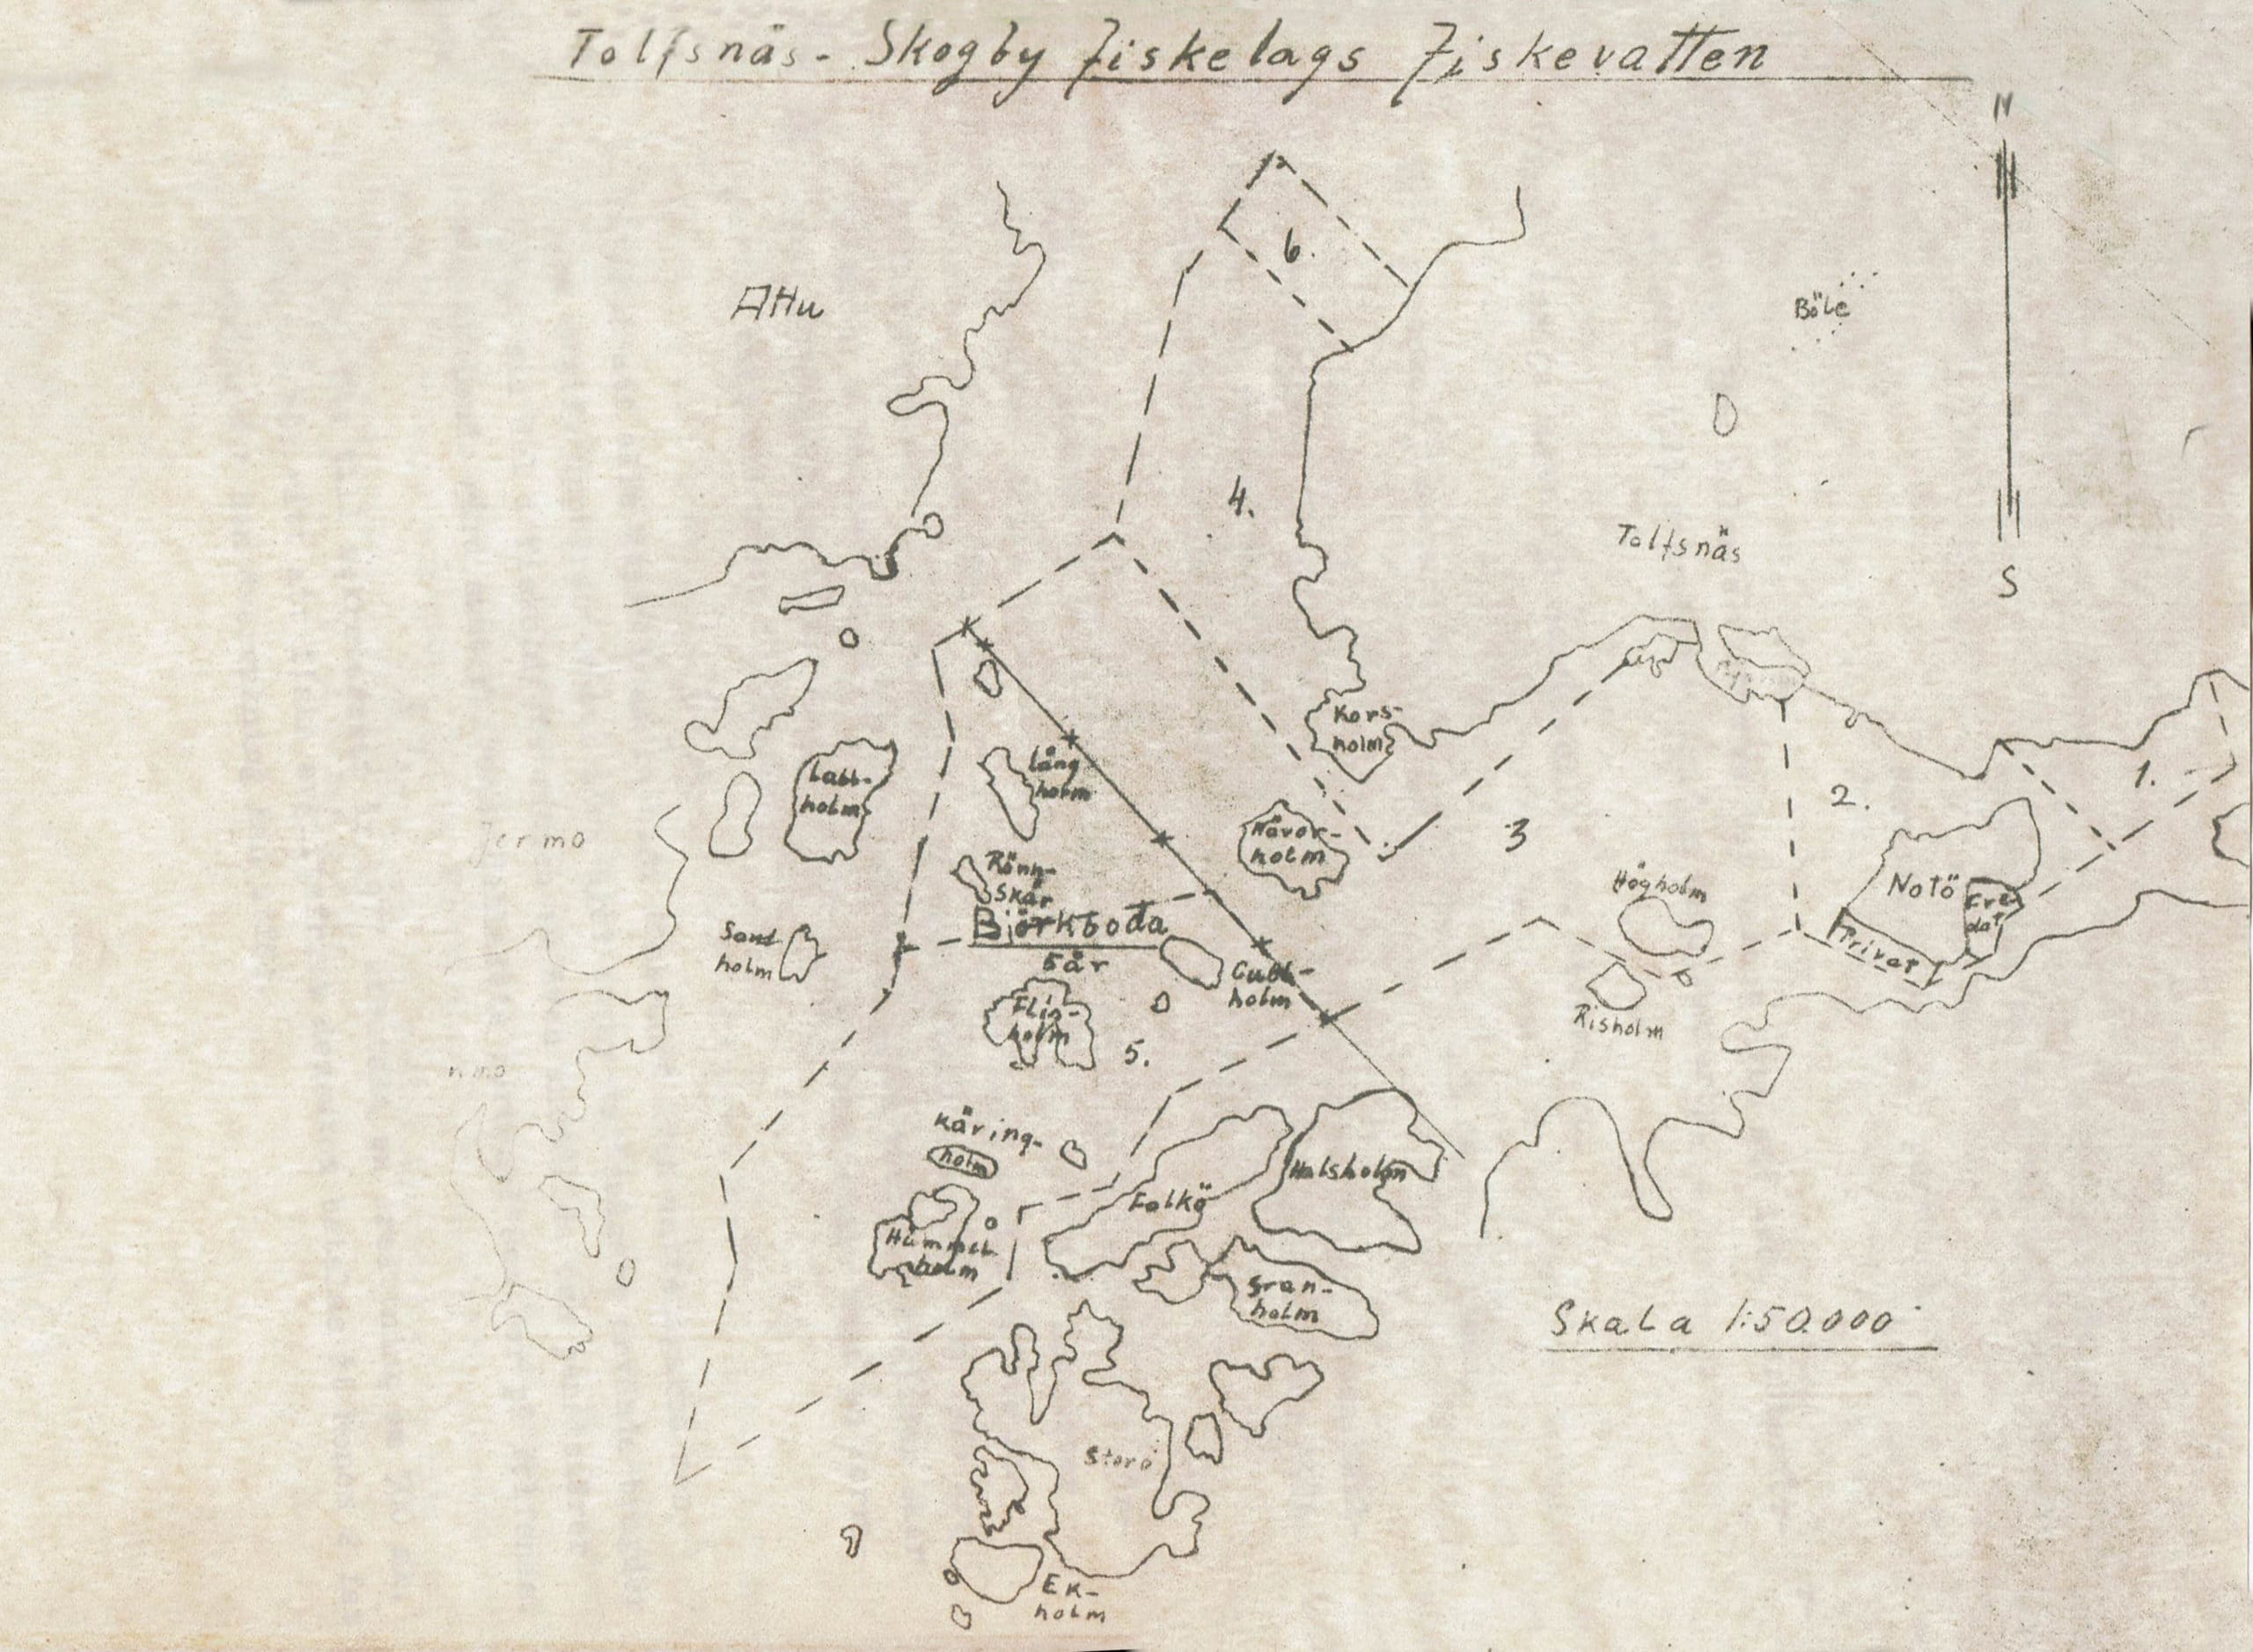 Tolfsnäs - Skogby Fiskelags Fiskevatten
N
6.
Attu
Böle
4.
Tolfsnäs
S
Kors-
holm
1.
Labb-
holm
Lång
holm
2.
Jermo
Hävor-
holm
3
Rönn-
Skär
Högholm
Notö
Björkboda
Privat
Sand
holm
5år
Gubb-
holm
Flis-
holm
Risholm
5.
nmo
Käring-
holm
Halsholm
Falkö
Hummel
holm
Gran-
holm
Skala 1:50.000
Storö
Ek-
holm